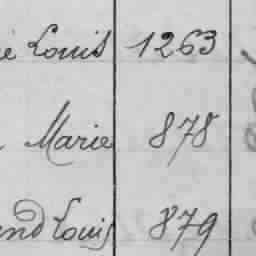 Louis 1263
Marie 878
Louis 879